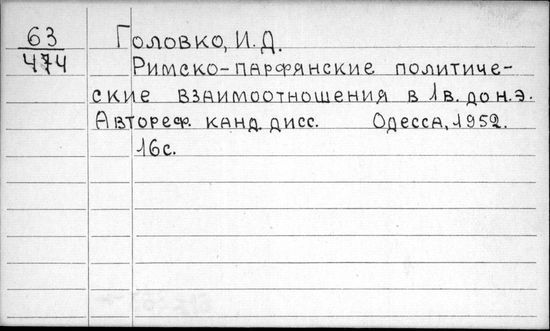 63 Головко, И.Д.
474 Римско-парфянские политиче-
ские взаимоотношения в 1 в. до н.э.
Автореф. канд. дисс. Одесса, 1952.
16 с.